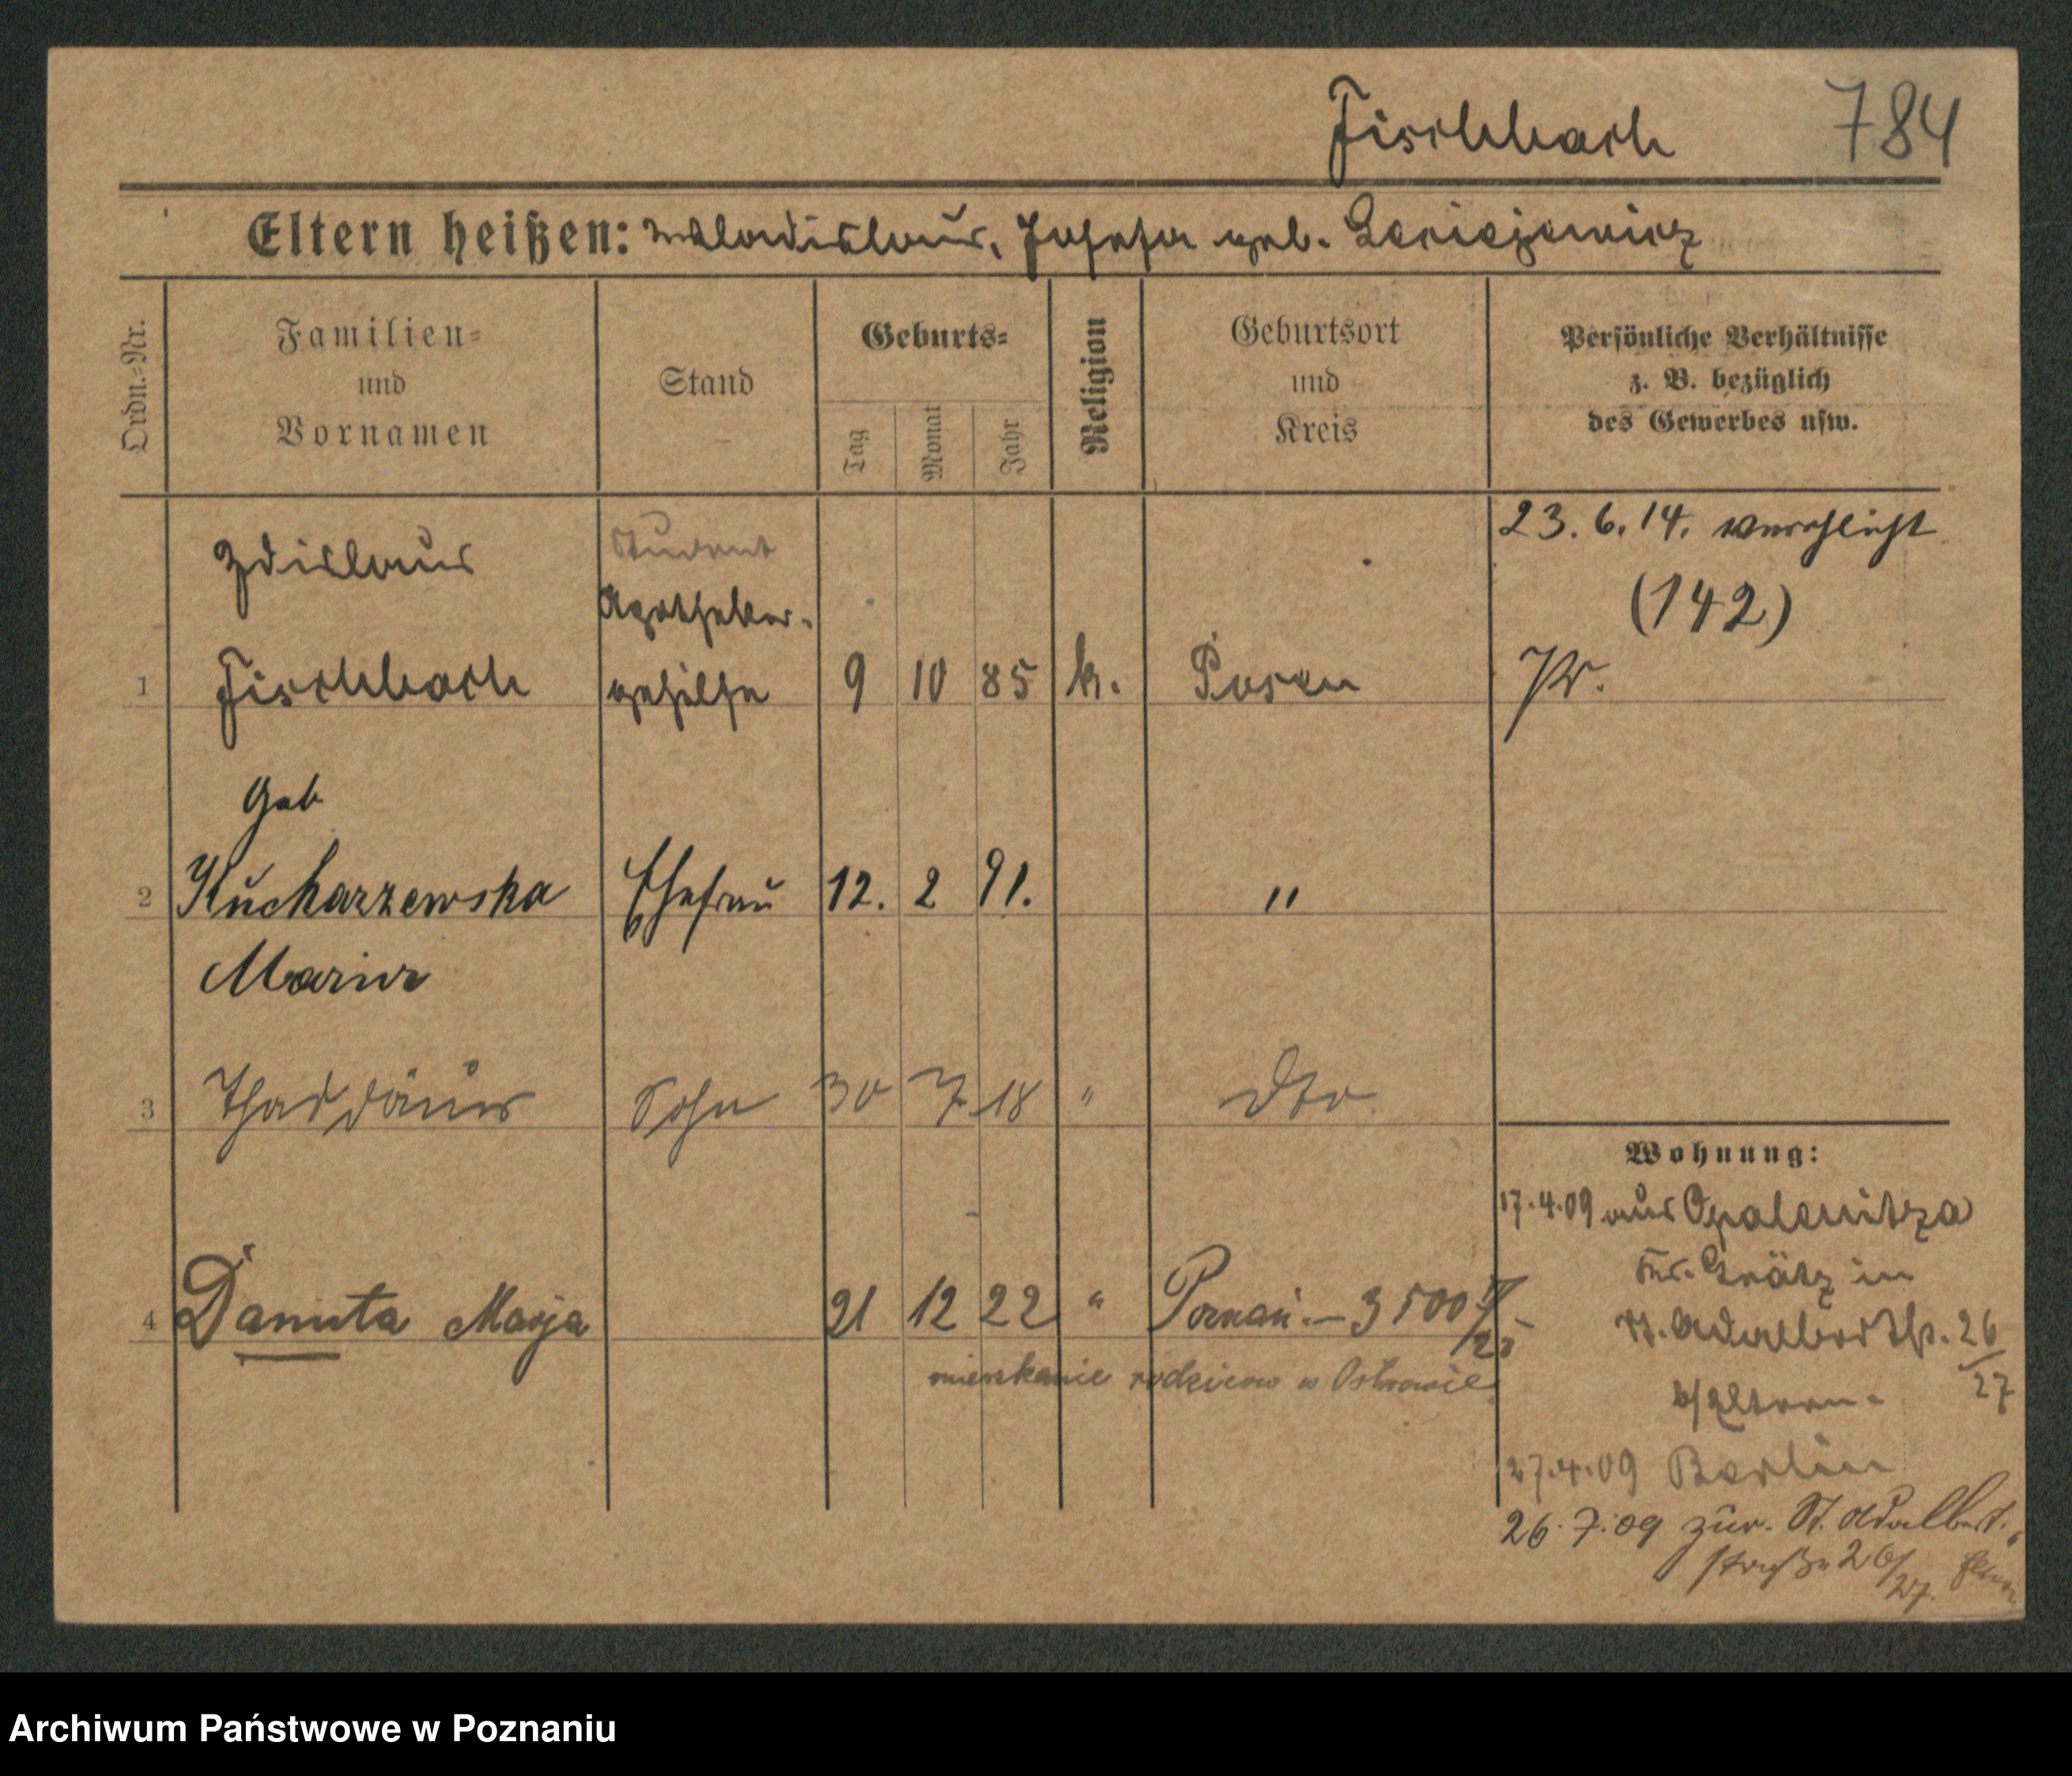 Fischbach 784
Eltern heißen: Wladislaus, Josefa geb.
Ordn.-Nr.
Familien-
und
Vornamen
Stand
Geburts-
Tag
Monat
Jahr
Religion
Geburtsort
und
Kreis
Persönliche Verhältnisse
z. B. bezüglich
des Gewerbes usw.
Zdislaus
Student
Apotheker-
1 Fischbach gehilfe 9 10 85 k. Posen
23.6.14. verehelicht
(142)
Geb
2 Kucharzewska Ehefrau 12. 2 91. "
Maria
3 Thaddäus Sohn 30 7 18 " dto
4 Danuta Marja 21 12 22 " Poznań. — 3500
mieszkanie rodziców w Ostrowie
Wohnung:
17.4.09 aus Opalenitza
Kr. Grätz in
St. Adalbertstr. 26/27
b/Eltern.
27.4.09 Berlin
26.7.09 zur. St. Adalbert-
straße 26/27. Eltern
Archiwum Państwowe w Poznaniu